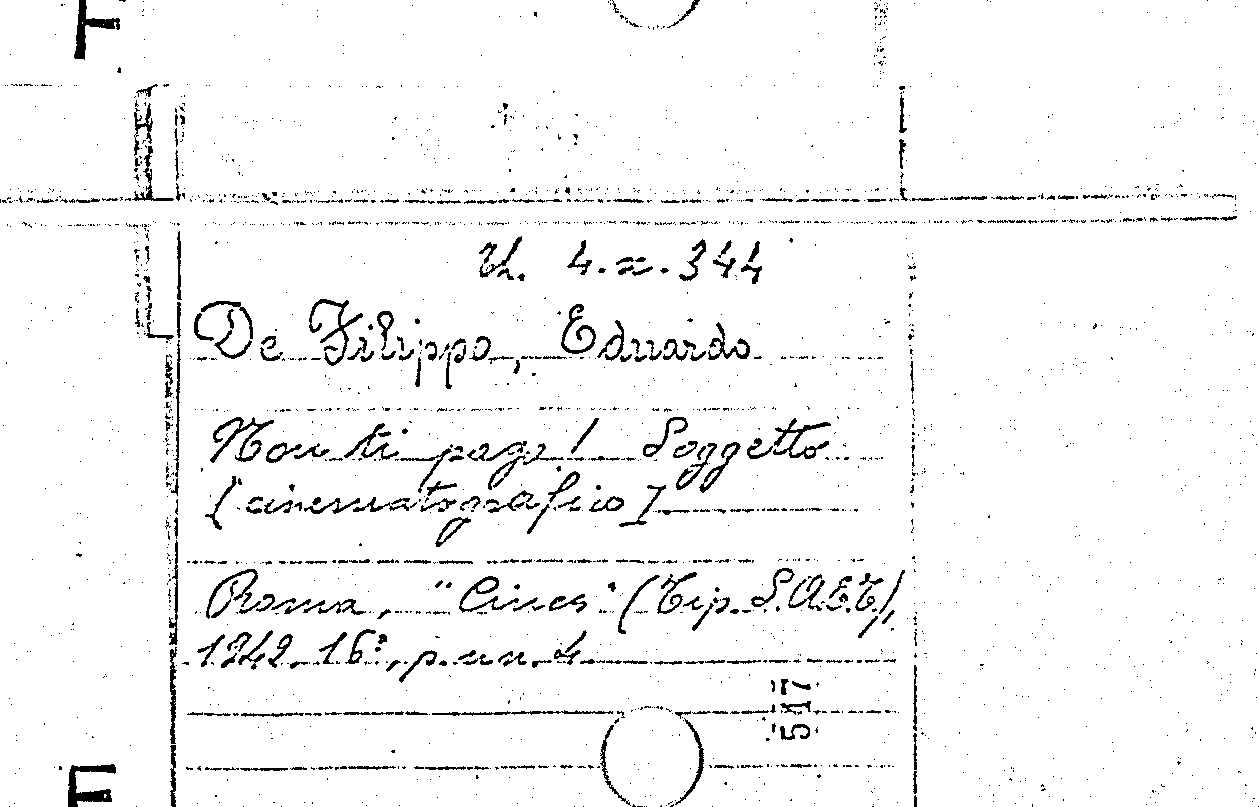 F
4.x.344
De Filippo, Eduardo
Non ti pago! Soggetto
[cinematografico]
Roma, "Cines" (Tip. S.A.E.T.),
1942. 16º, p. nn. 4
517
E